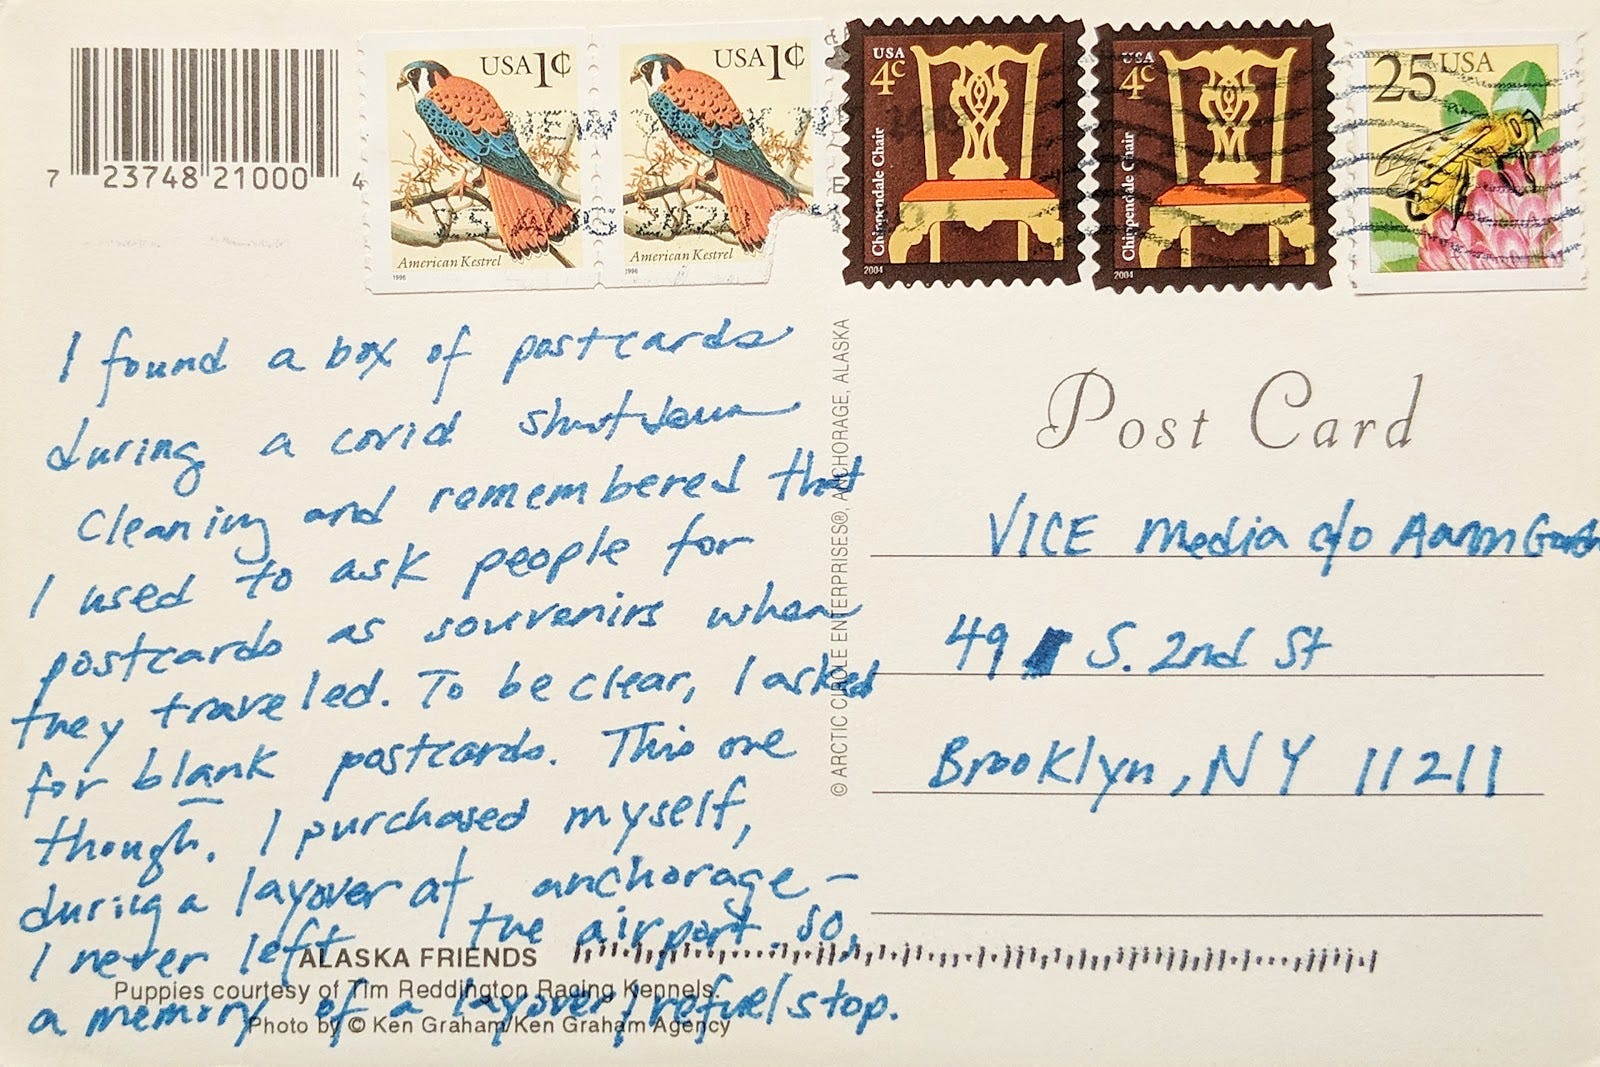 USA 1¢
American Kestrel
1996
USA 1¢
American Kestrel
1996
USA
4c
Chippendale Chair
2004
USA
4c
Chippendale Chair
2004
25 USA
NEW YORK NY
05 AUG 2020
7 23748 21000 4
I found a box of postcards
during a covid shutdown
cleaning and remembered that
I used to ask people for
postcards as souvenirs when
they traveled. To be clear, I asked
for blank postcards. This one
though, I purchased myself,
during a layover at anchorage –
I never left the airport. So,
a memory of a layover/refuel stop.
ALASKA FRIENDS
Puppies courtesy of Tim Reddington Racing Kennels.
Photo by © Ken Graham/Ken Graham Agency
© ARCTIC CIRCLE ENTERPRISES®, ANCHORAGE, ALASKA
Post Card
VICE Media c/o Aaron
49 S. 2nd St
Brooklyn, NY 11211